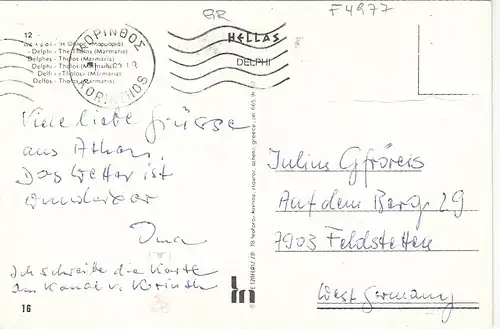 GR
F4977
12
- Delphi - The Tholos (Marmaria)
Delphes - The Tholos (Marmaria)
Delphi - Tholos (Marmaria)
Delfi - Tholos (Marmaria)
Delfos - Tholos (Marmaria)
ΚΟΡΙΝΘΟΣ
KORINTHOS
HELLAS
DELPHI
Viele liebe Grüsse
aus Athen.
Das Wetter ist
wunderbar
Ich schreibe die Karte
am Kanal v. Korinth
16
Julius Gfröreis
Auf dem Berg 29
7903 Feldstetten
West Germany